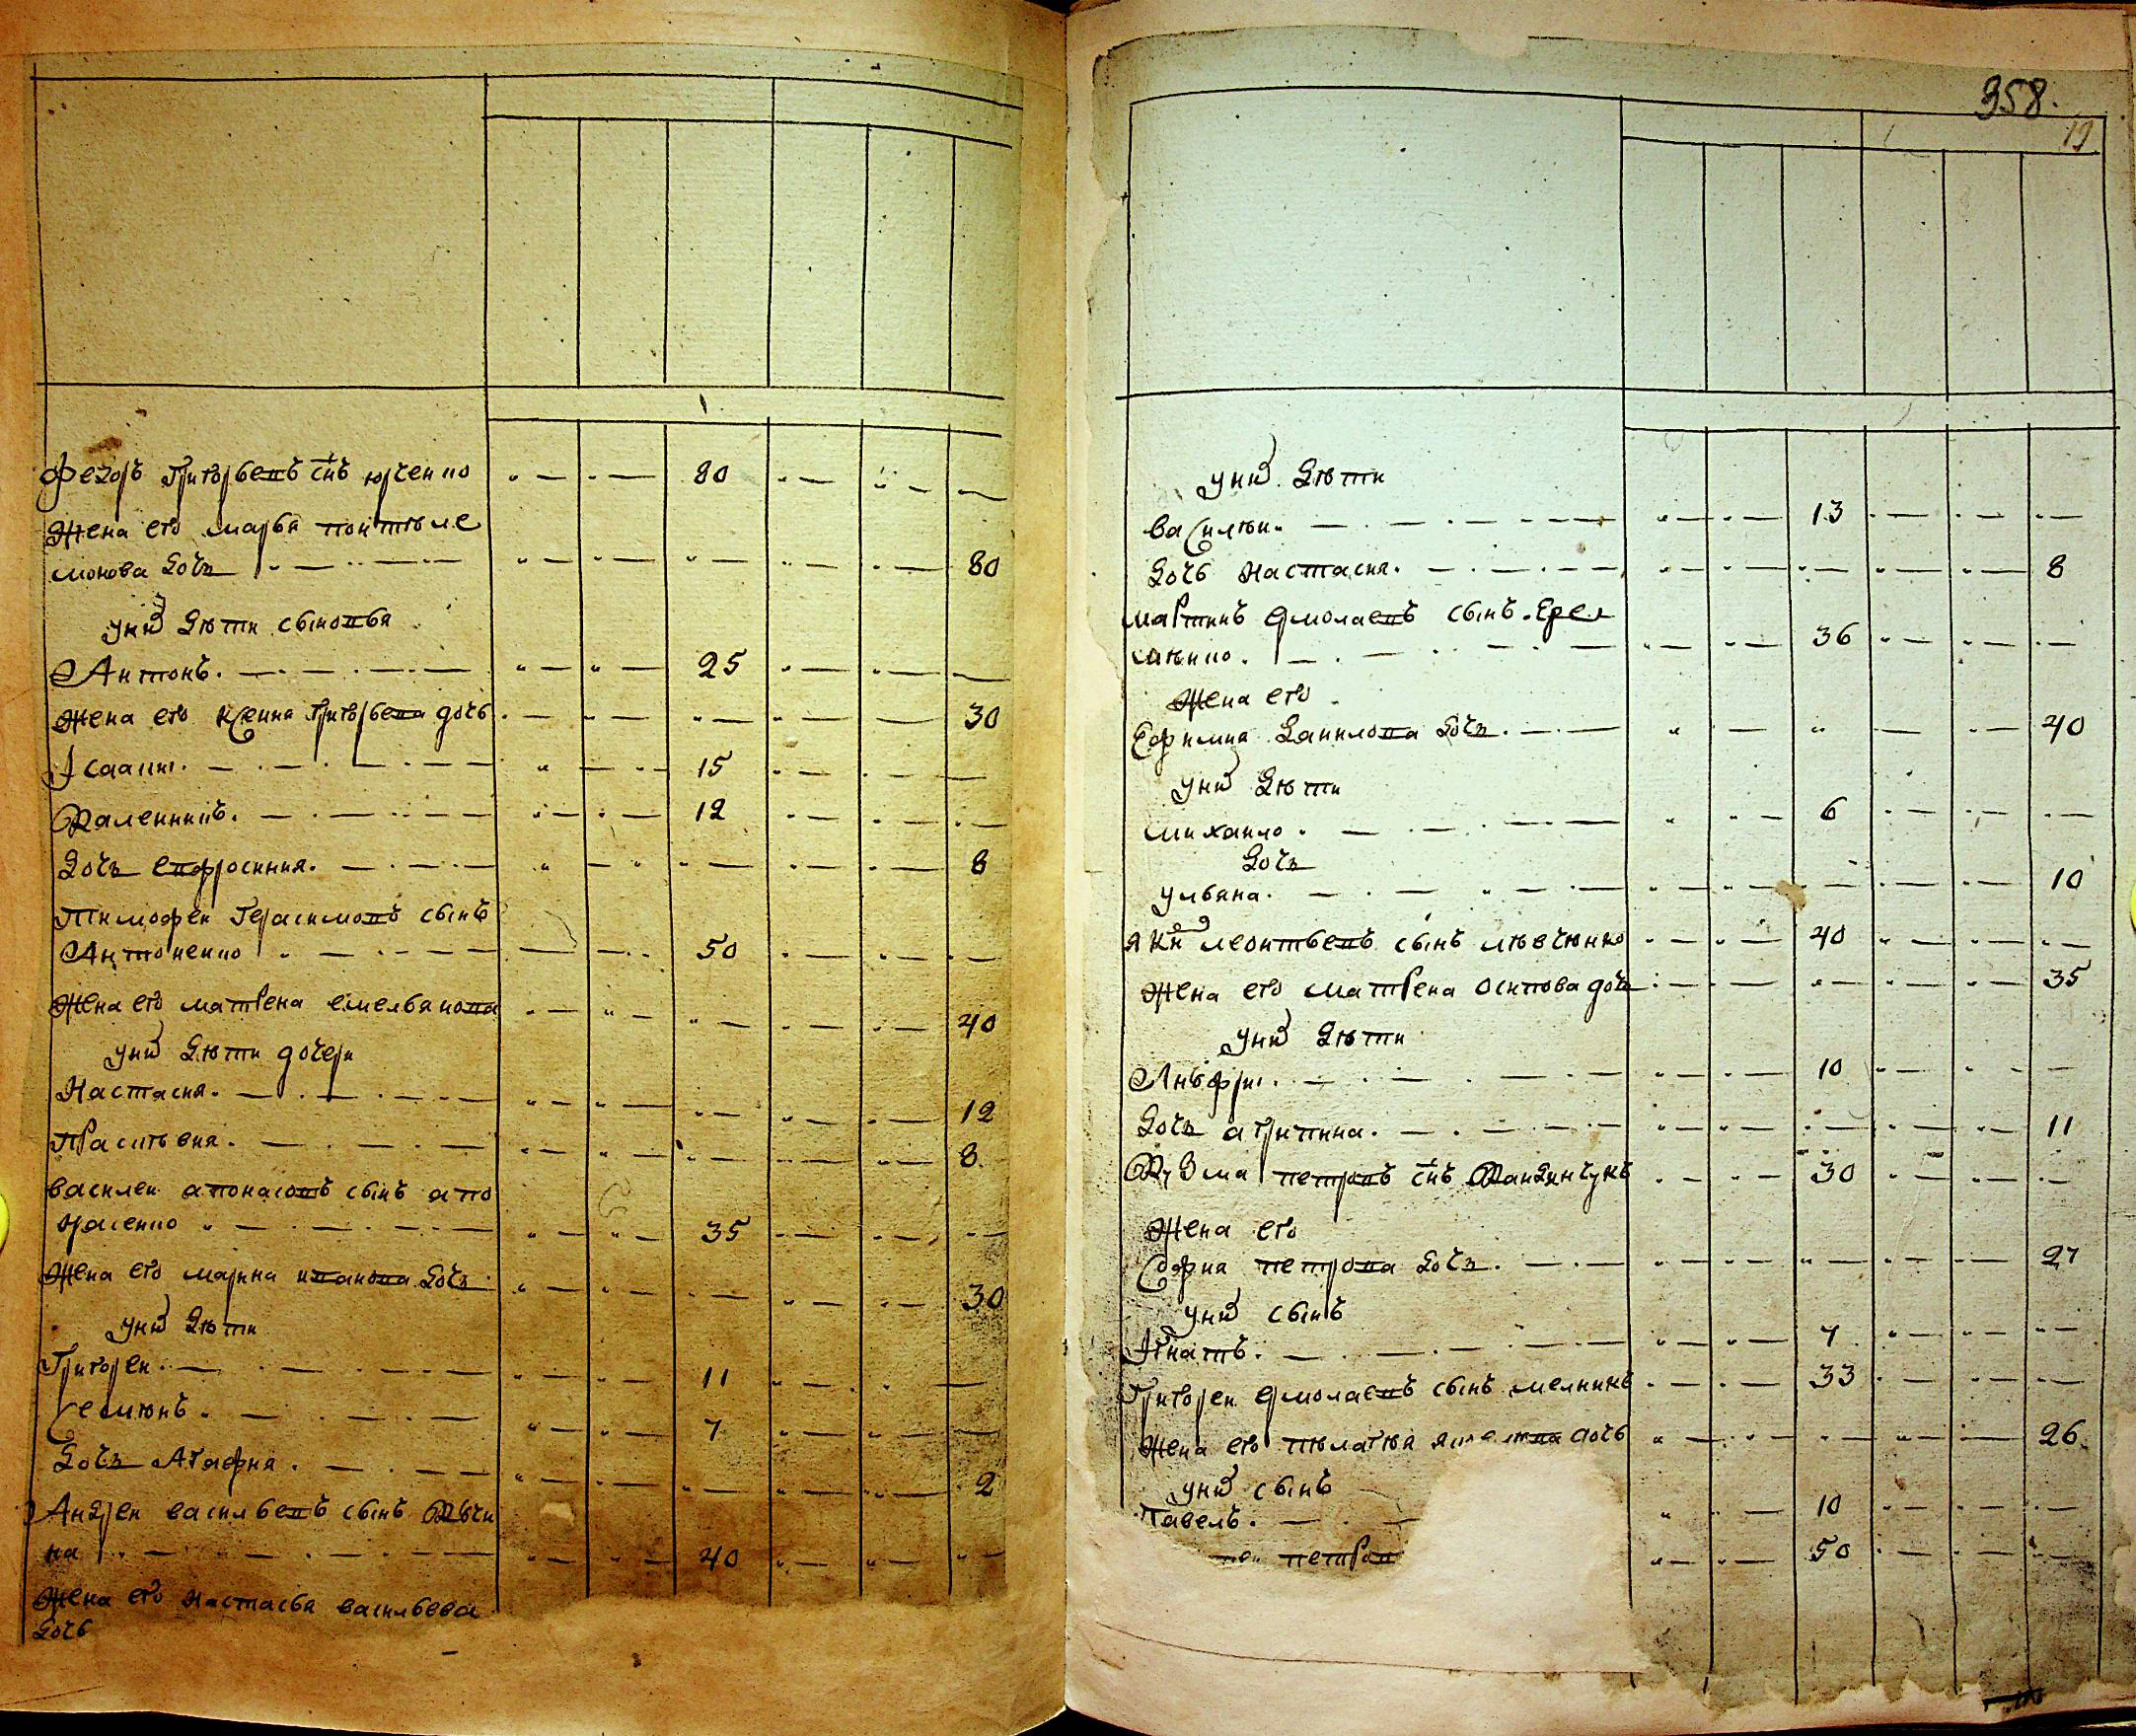 Федоръ Григорьевъ снъ юрченко 80
Жена его марья понтеле
монова дочь 80
уних дѣти сыновья
Антонъ. 25
жена его ксенна григорьева дочь. 30
Ісаакии. 15
Каленникъ. 12
дочь евфросиния. 8
Тимофеи Герасимовъ сынъ
Антоненко 50
Жена его матрена емельянова 40
уних дѣти дочери
Настасия. 12
Прасковия. 8.
василеи апонасовъ сынъ апо
насенко 35
Жена его марина иванова дочь 30
уних дѣти
Григореи. 11
Семионъ. 7
дочь Агафия. 2
Андреи васильевъ сынъ
на 40
Жена его настасья васильева
дочь
358.
19
уних дѣти
василеи. 13
дочь настасия. 8
мартинъ ермолаевъ сынъ. Ерем
ѣенко. 36
Жена его
Ефимия данилова дочь. 40
уних дѣти
михаило. 6
дочь
ульяна. 10
яким леонтьевъ сынъ левченко 40
жена его матрена осипова дочь 35
уних дѣти
Анофри. 10
дочь агрипина. 11
Кузма петровъ снъ Кандинчукъ 30
Жена его
София петрова дочь. 27
уних сынъ
Ігнатъ. 7
Григореи ермолаевъ сынъ мелникъ 33
Жена его пелагея дочь 26.
уних сынъ
Павелъ. 10
петров 50